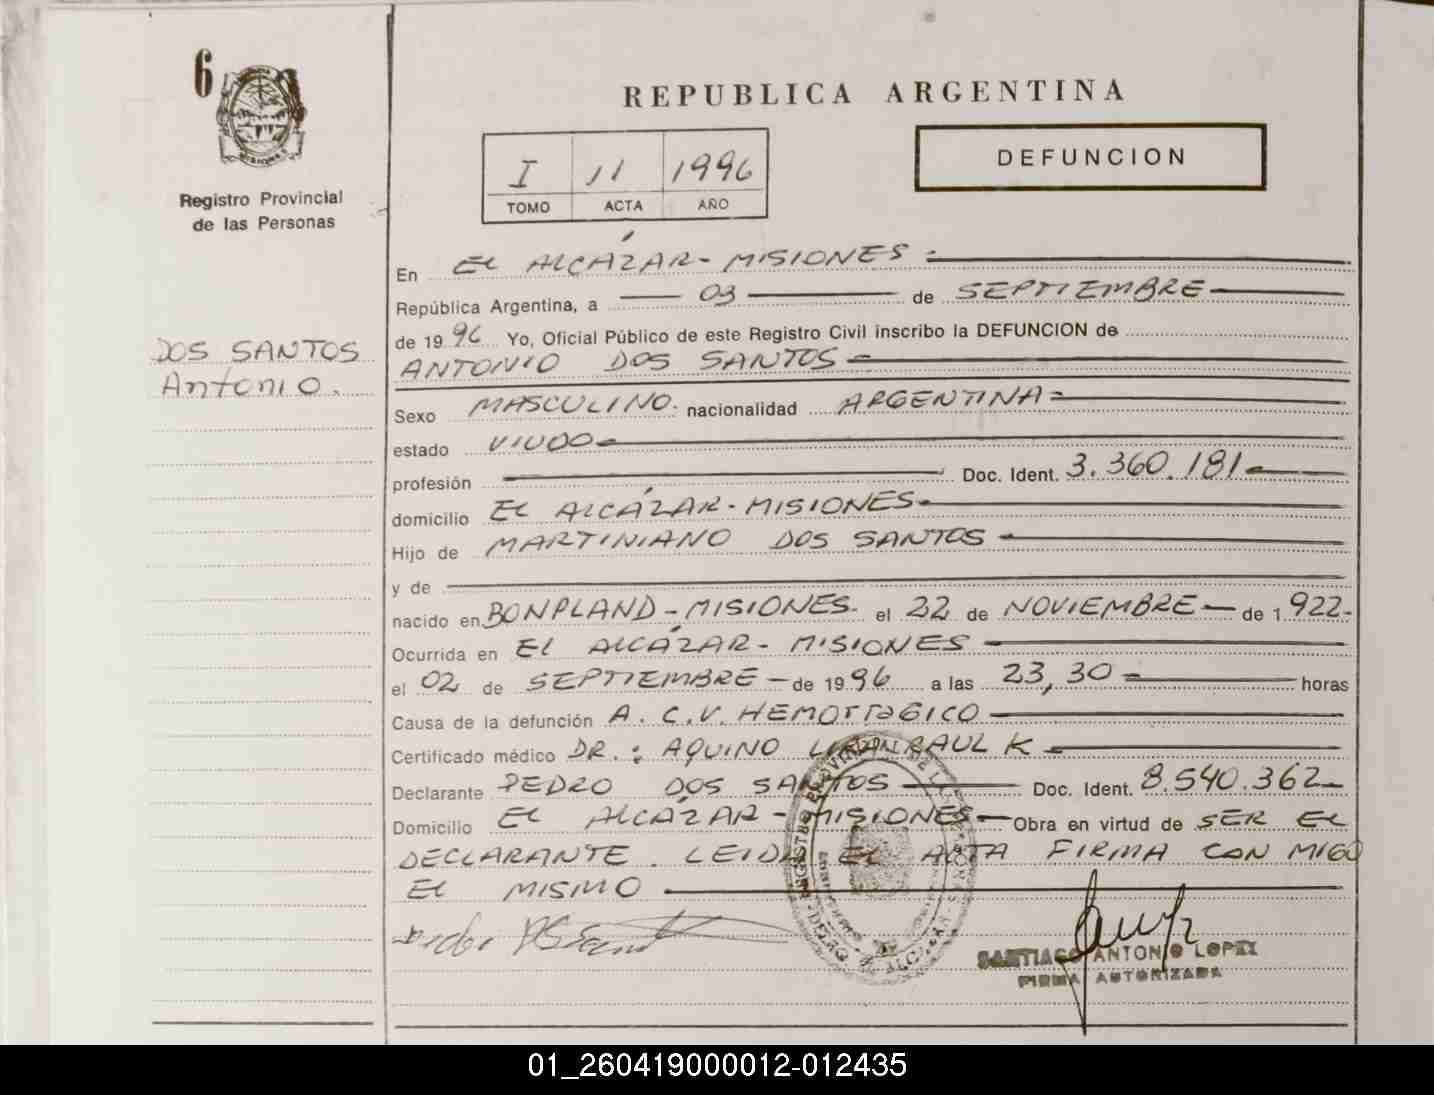 6
Registro Provincial
de las Personas
DOS SANTOS
Antonio.
REPUBLICA ARGENTINA
I 11 1996
TOMO ACTA AÑO
DEFUNCION
En EL ALCÁZAR - MISIONES =
República Argentina, a 03 de SEPTIEMBRE
de 1996 Yo, Oficial Público de este Registro Civil inscribo la DEFUNCION de
ANTONIO DOS SANTOS =
Sexo MASCULINO. nacionalidad ARGENTINA =
estado VIUDO
profesión Doc. Ident. 3.360.181
domicilio EL ALCÁZAR - MISIONES
Hijo de MARTINIANO DOS SANTOS
y de
nacido en BONPLAND - MISIONES. el 22 de NOVIEMBRE - de 1.922-
Ocurrida en EL ALCÁZAR - MISIONES
el 02 de SEPTIEMBRE - de 1996 a las 23,30 = horas
Causa de la defunción A. C. V. HEMORRAGICO
Certificado médico DR.: AQUINO RAUL K
Declarante PEDRO DOS SANTOS Doc. Ident. 8.540.362
Domicilio EL ALCÁZAR - MISIONES Obra en virtud de SER EL
DECLARANTE. LEIDA EL ACTA FIRMA CON MIGO
EL MISMO
SANTIAGO ANTONIO LOPEZ
FIRMA AUTORIZADA
01_260419000012-012435